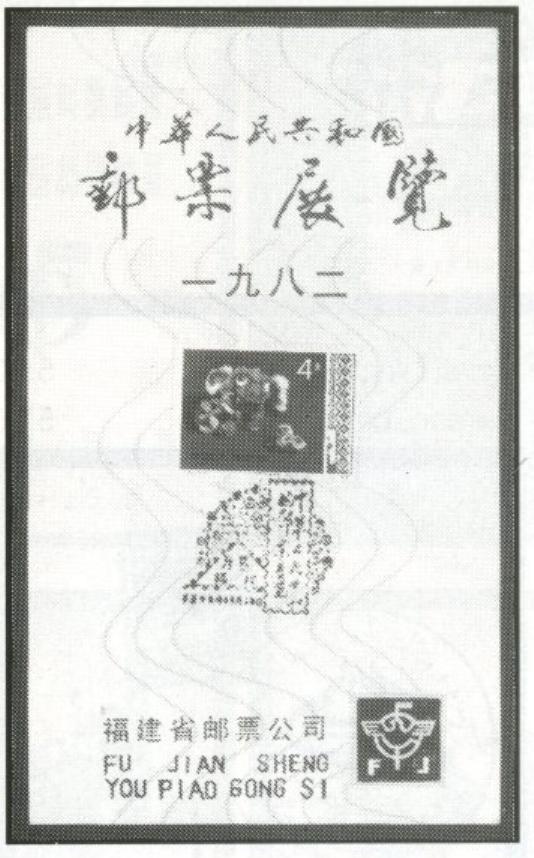 中华人民共和國
郵票展覽
一九八二
4
福建省邮票公司
FU JIAN SHENG
YOU PIAO GONG SI
F J